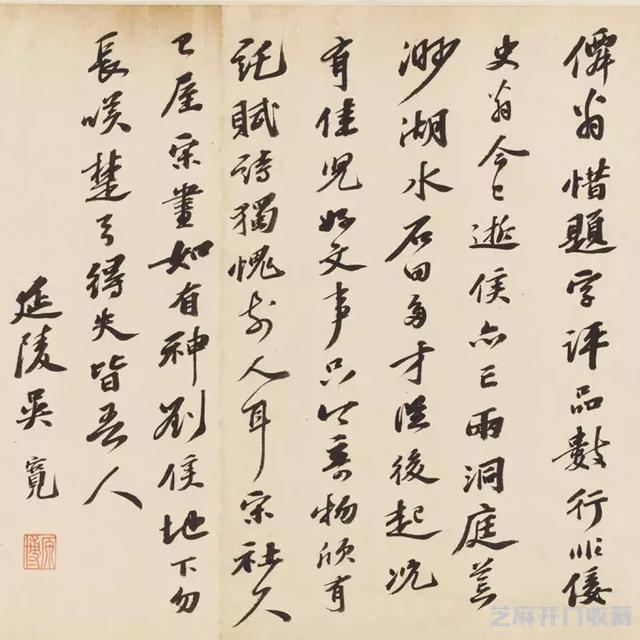 翁惜題字評品數行
史翁今已逝侯亦已雨洞庭芒
渺湖水石田多才從後起況
有佳兒好文事只今棄物欣有
託賦詩獨愧前人耳宋社久
已屋宋畫如有神劉侯地下勿
長嘆楚弓得失皆吾人
延陵吳寬
原博
芝麻开门收藏